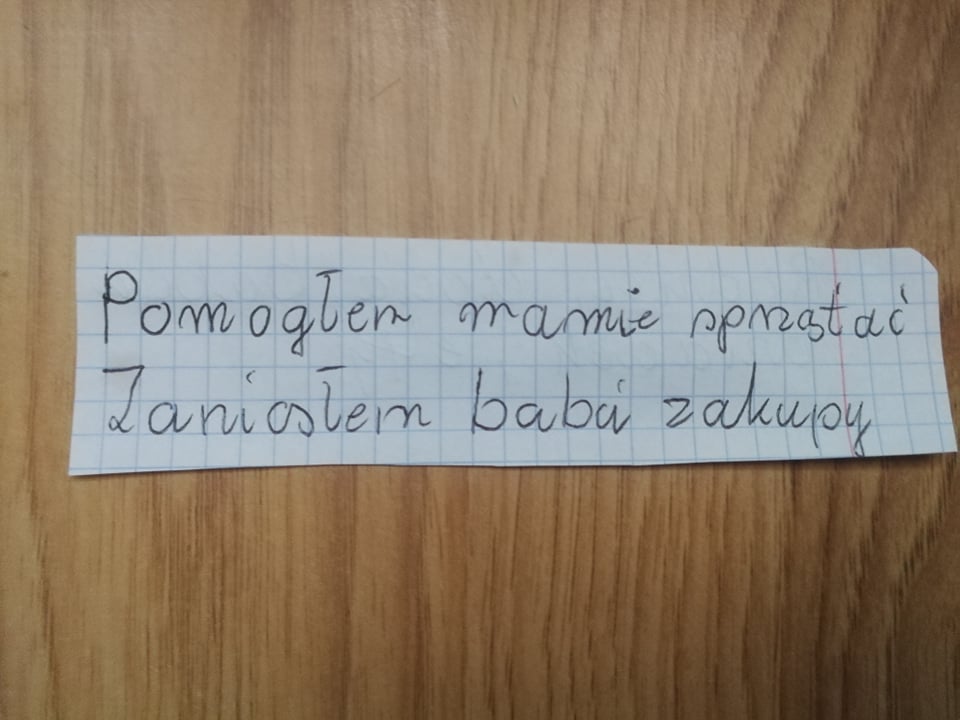 Pomogłem mamie sprzątać
Zaniosłem babci zakupy